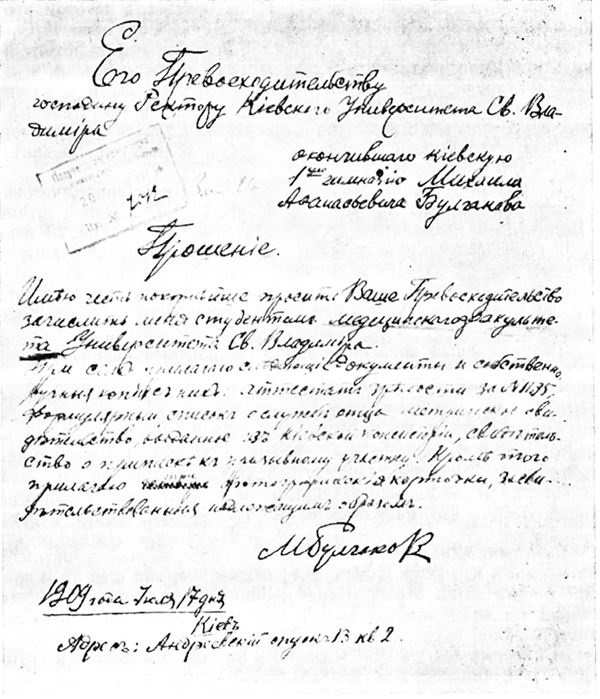 Его Превосходительству
господину Ректору Кіевского Университета Св. Вла-
диміра
окончившаго Кіевскую
1ую гимназію Михаила
Аѳанасьевича Булгакова
Прошеніе.
Имѣю честь покорнѣйше просить Ваше Превосходительство
зачислить меня студентомъ медицинскаго факульте-
та Университета Св. Владиміра.
При семъ прилагаю слѣдующіе документы и собственно
ручныя копіи съ нихъ: аттестатъ зрѣлости за №1135
формулярный списокъ о службѣ отца, метрическое сви-
дѣтельство, выданное изъ Кіевской консисторіи, свидѣтель-
ство о припискѣ къ призывному участку. Кромѣ этого
прилагаю фотографическія карточки, засви-
дѣтельствованныя надлежащимъ образомъ.
МБулгаков
1909 года Іюля 17 дня
Кіевъ
Адресъ: Андреевскій спускъ 13 кв 2.